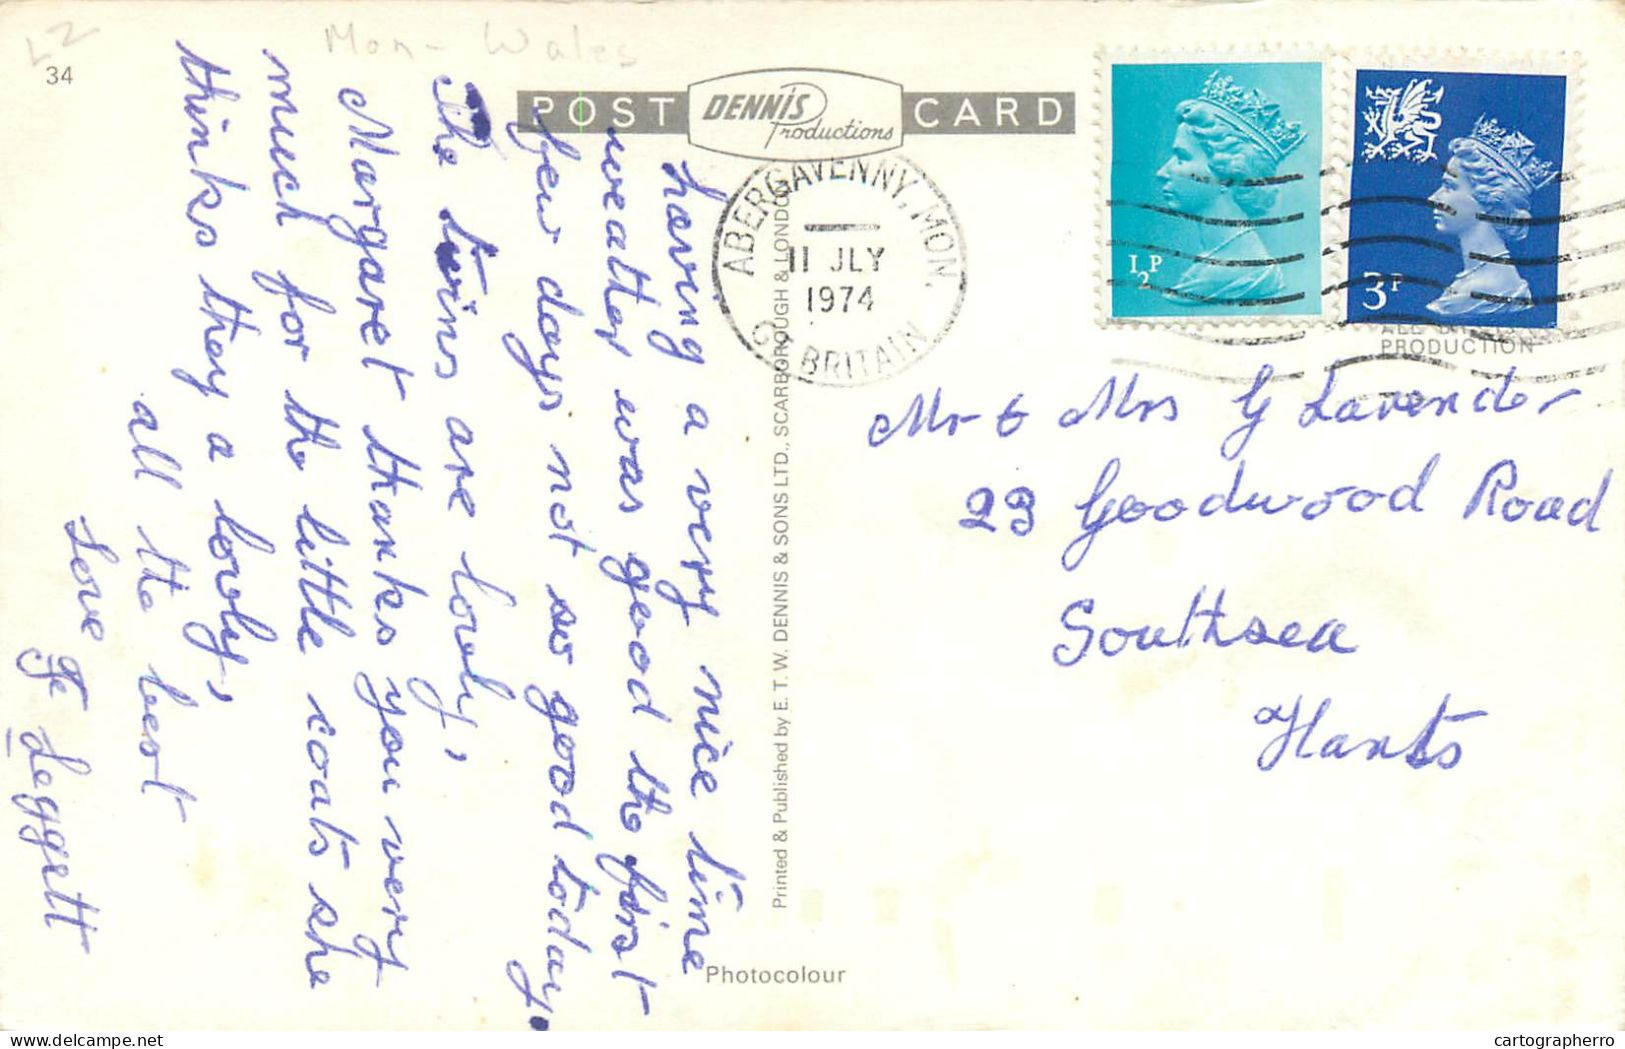 L2
Mon - Wales
34
POST CARD
DENNIS
Productions
ABERGAVENNY, MON.
11 JLY
1974
GT BRITAIN
1/2P
3P
ALL BRITISH
PRODUCTION
having a very nice time
weather was good the first
few days not so good today,
The twins are lovely,
Margaret thanks you very
much for the little coats she
thinks they a lovely,
all the best
Love
F Leggett
Mr & Mrs G Lavender
23 Goodwood Road
Southsea
Hants
Printed & Published by E. T. W. DENNIS & SONS LTD., SCARBOROUGH & LONDON
Photocolour
cartographerro